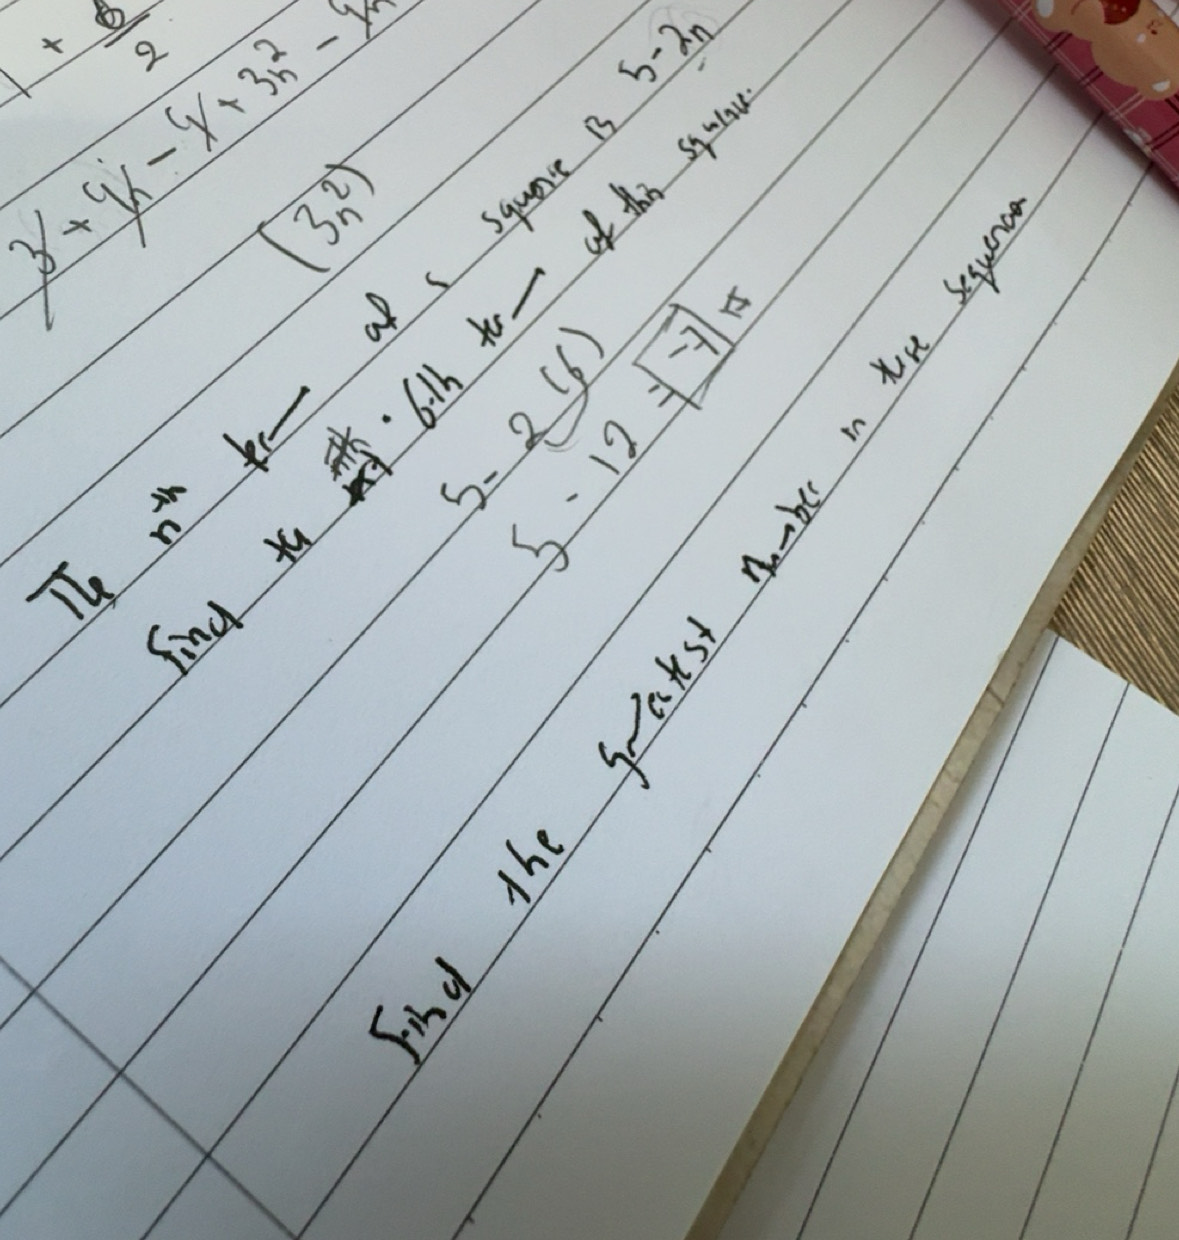 + 6/2
3 + 9n - 9 + 3n² - 9n
(3n²)
The nth ter of s squence is 5-2n
find the 6th ter of this squence.
5- 2(6)
5 - 12 = -7
find the greatest number in these sequence